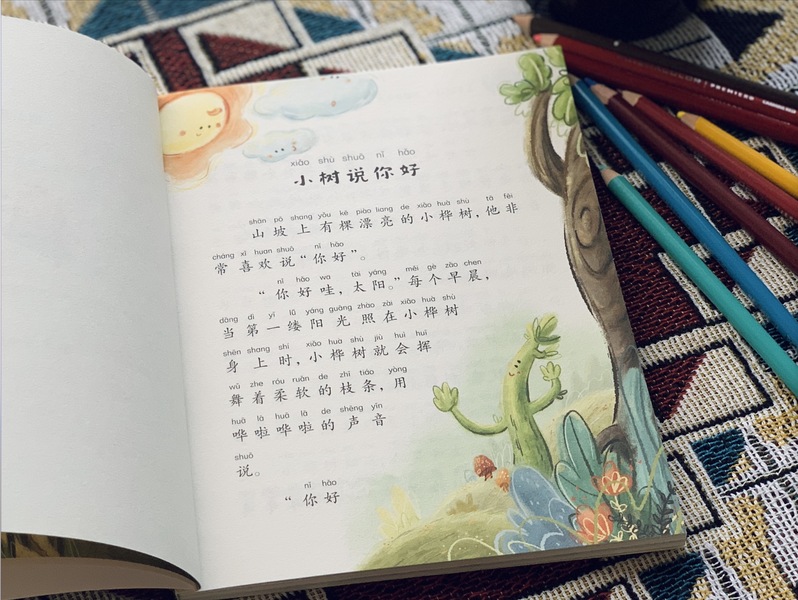 xiǎo shù shuō nǐ hǎo
小树说你好
shān pō shang yǒu kē piào liang de xiǎo huà shù tā fēi
山坡上有棵漂亮的小桦树，他非
cháng xǐ huan shuō nǐ hǎo
常喜欢说“你好”。
nǐ hǎo wa tài yáng měi gè zǎo chen
“你好哇，太阳。”每个早晨，
dāng dì yī lǚ yáng guāng zhào zài xiǎo huà shù
当第一缕阳光照在小桦树
shēn shang shí xiǎo huà shù jiù huì huī
身上时，小桦树就会挥
wǔ zhe róu ruǎn de zhī tiáo yòng
舞着柔软的枝条，用
huā lā huā lā de shēng yīn
哗啦哗啦的声音
shuō
说。
nǐ hǎo
“你好
PREMIER